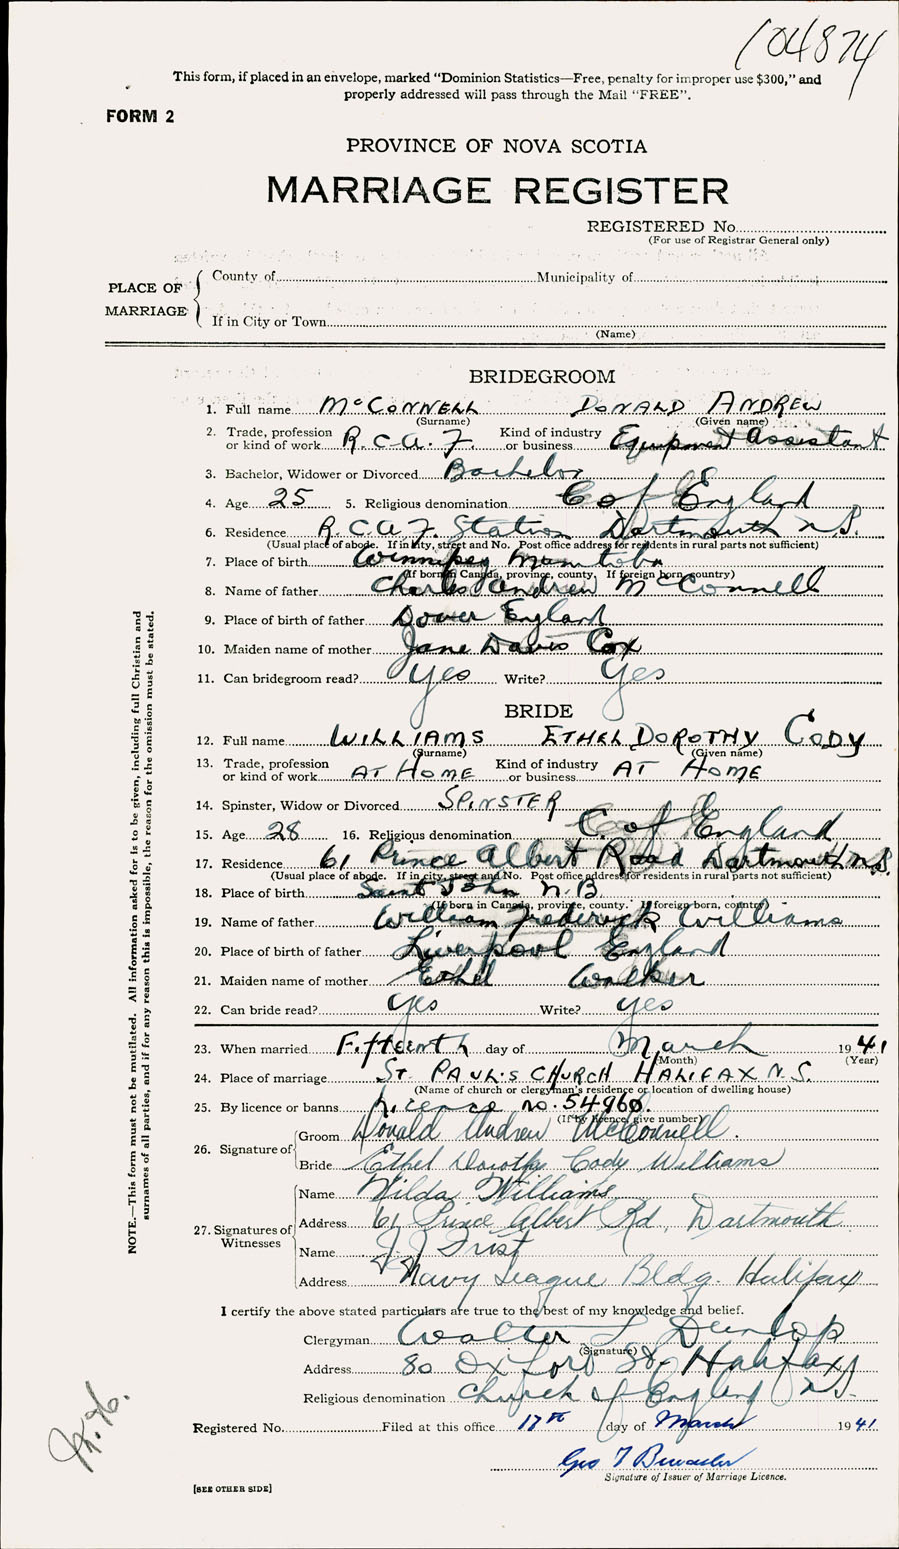 104874
This form, if placed in an envelope, marked "Dominion Statistics—Free, penalty for improper use $300," and
properly addressed will pass through the Mail "FREE".
FORM 2
PROVINCE OF NOVA SCOTIA
MARRIAGE REGISTER
REGISTERED No.
(For use of Registrar General only)
PLACE OF MARRIAGE
County of Municipality of
If in City or Town
(Name)
BRIDEGROOM
1. Full name McConnell Donald Andrew
(Surname) (Given name)
2. Trade, profession or kind of work R.C.A.F Kind of industry or business Equipment Assistant
3. Bachelor, Widower or Divorced Bachelor
4. Age 25 5. Religious denomination C of England
6. Residence R.C.A.F. Station Dartmouth N.S.
(Usual place of abode. If in city, street and No. Post office address for residents in rural parts not sufficient)
7. Place of birth Winnipeg Manitoba
(If born in Canada, province, county. If foreign born, country)
8. Name of father Charles Andrew McConnell
9. Place of birth of father Dover England
10. Maiden name of mother Jane Davis Cox
11. Can bridegroom read? Yes Write? Yes
BRIDE
12. Full name WILLIAMS ETHEL DOROTHY Cody
(Surname) (Given name)
13. Trade, profession or kind of work AT HOME Kind of industry or business AT HOME
14. Spinster, Widow or Divorced SPINSTER
15. Age 28 16. Religious denomination C. of England
17. Residence 61 Prince Albert Road Dartmouth N.S.
(Usual place of abode. If in city, street and No. Post office address for residents in rural parts not sufficient)
18. Place of birth Saint John N.B.
(If born in Canada, province, county. If foreign born, country)
19. Name of father William Frederick Williams
20. Place of birth of father Liverpool England
21. Maiden name of mother Ethel Walker
22. Can bride read? Yes Write? Yes
23. When married Fifteenth day of March 1941
(Month) (Year)
24. Place of marriage ST. PAUL'S CHURCH HALIFAX N.S.
(Name of church or clergyman's residence or location of dwelling house)
25. By licence or banns Licence no. 54960.
(If by licence, give number)
26. Signature of Groom Donald Andrew McConnell.
Bride Ethel Dorothy Cody Williams
27. Signatures of Witnesses
Name Hilda Williams
Address 61 Prince Albert Rd, Dartmouth
Name J J Trist
Address Navy League Bldg. Halifax
I certify the above stated particulars are true to the best of my knowledge and belief.
Clergyman Walter L Dunlop
(Signature)
Address 80 Oxford St. Halifax
Religious denomination Church of England N.S.
Registered No. Filed at this office 17th day of March 1941
Geo T
Signature of Issuer of Marriage Licence.
[SEE OTHER SIDE]
NOTE.—This form must not be mutilated. All information asked for is to be given, including full Christian and
surnames of all parties, and if for any reason this is impossible, the reason for the omission must be stated.